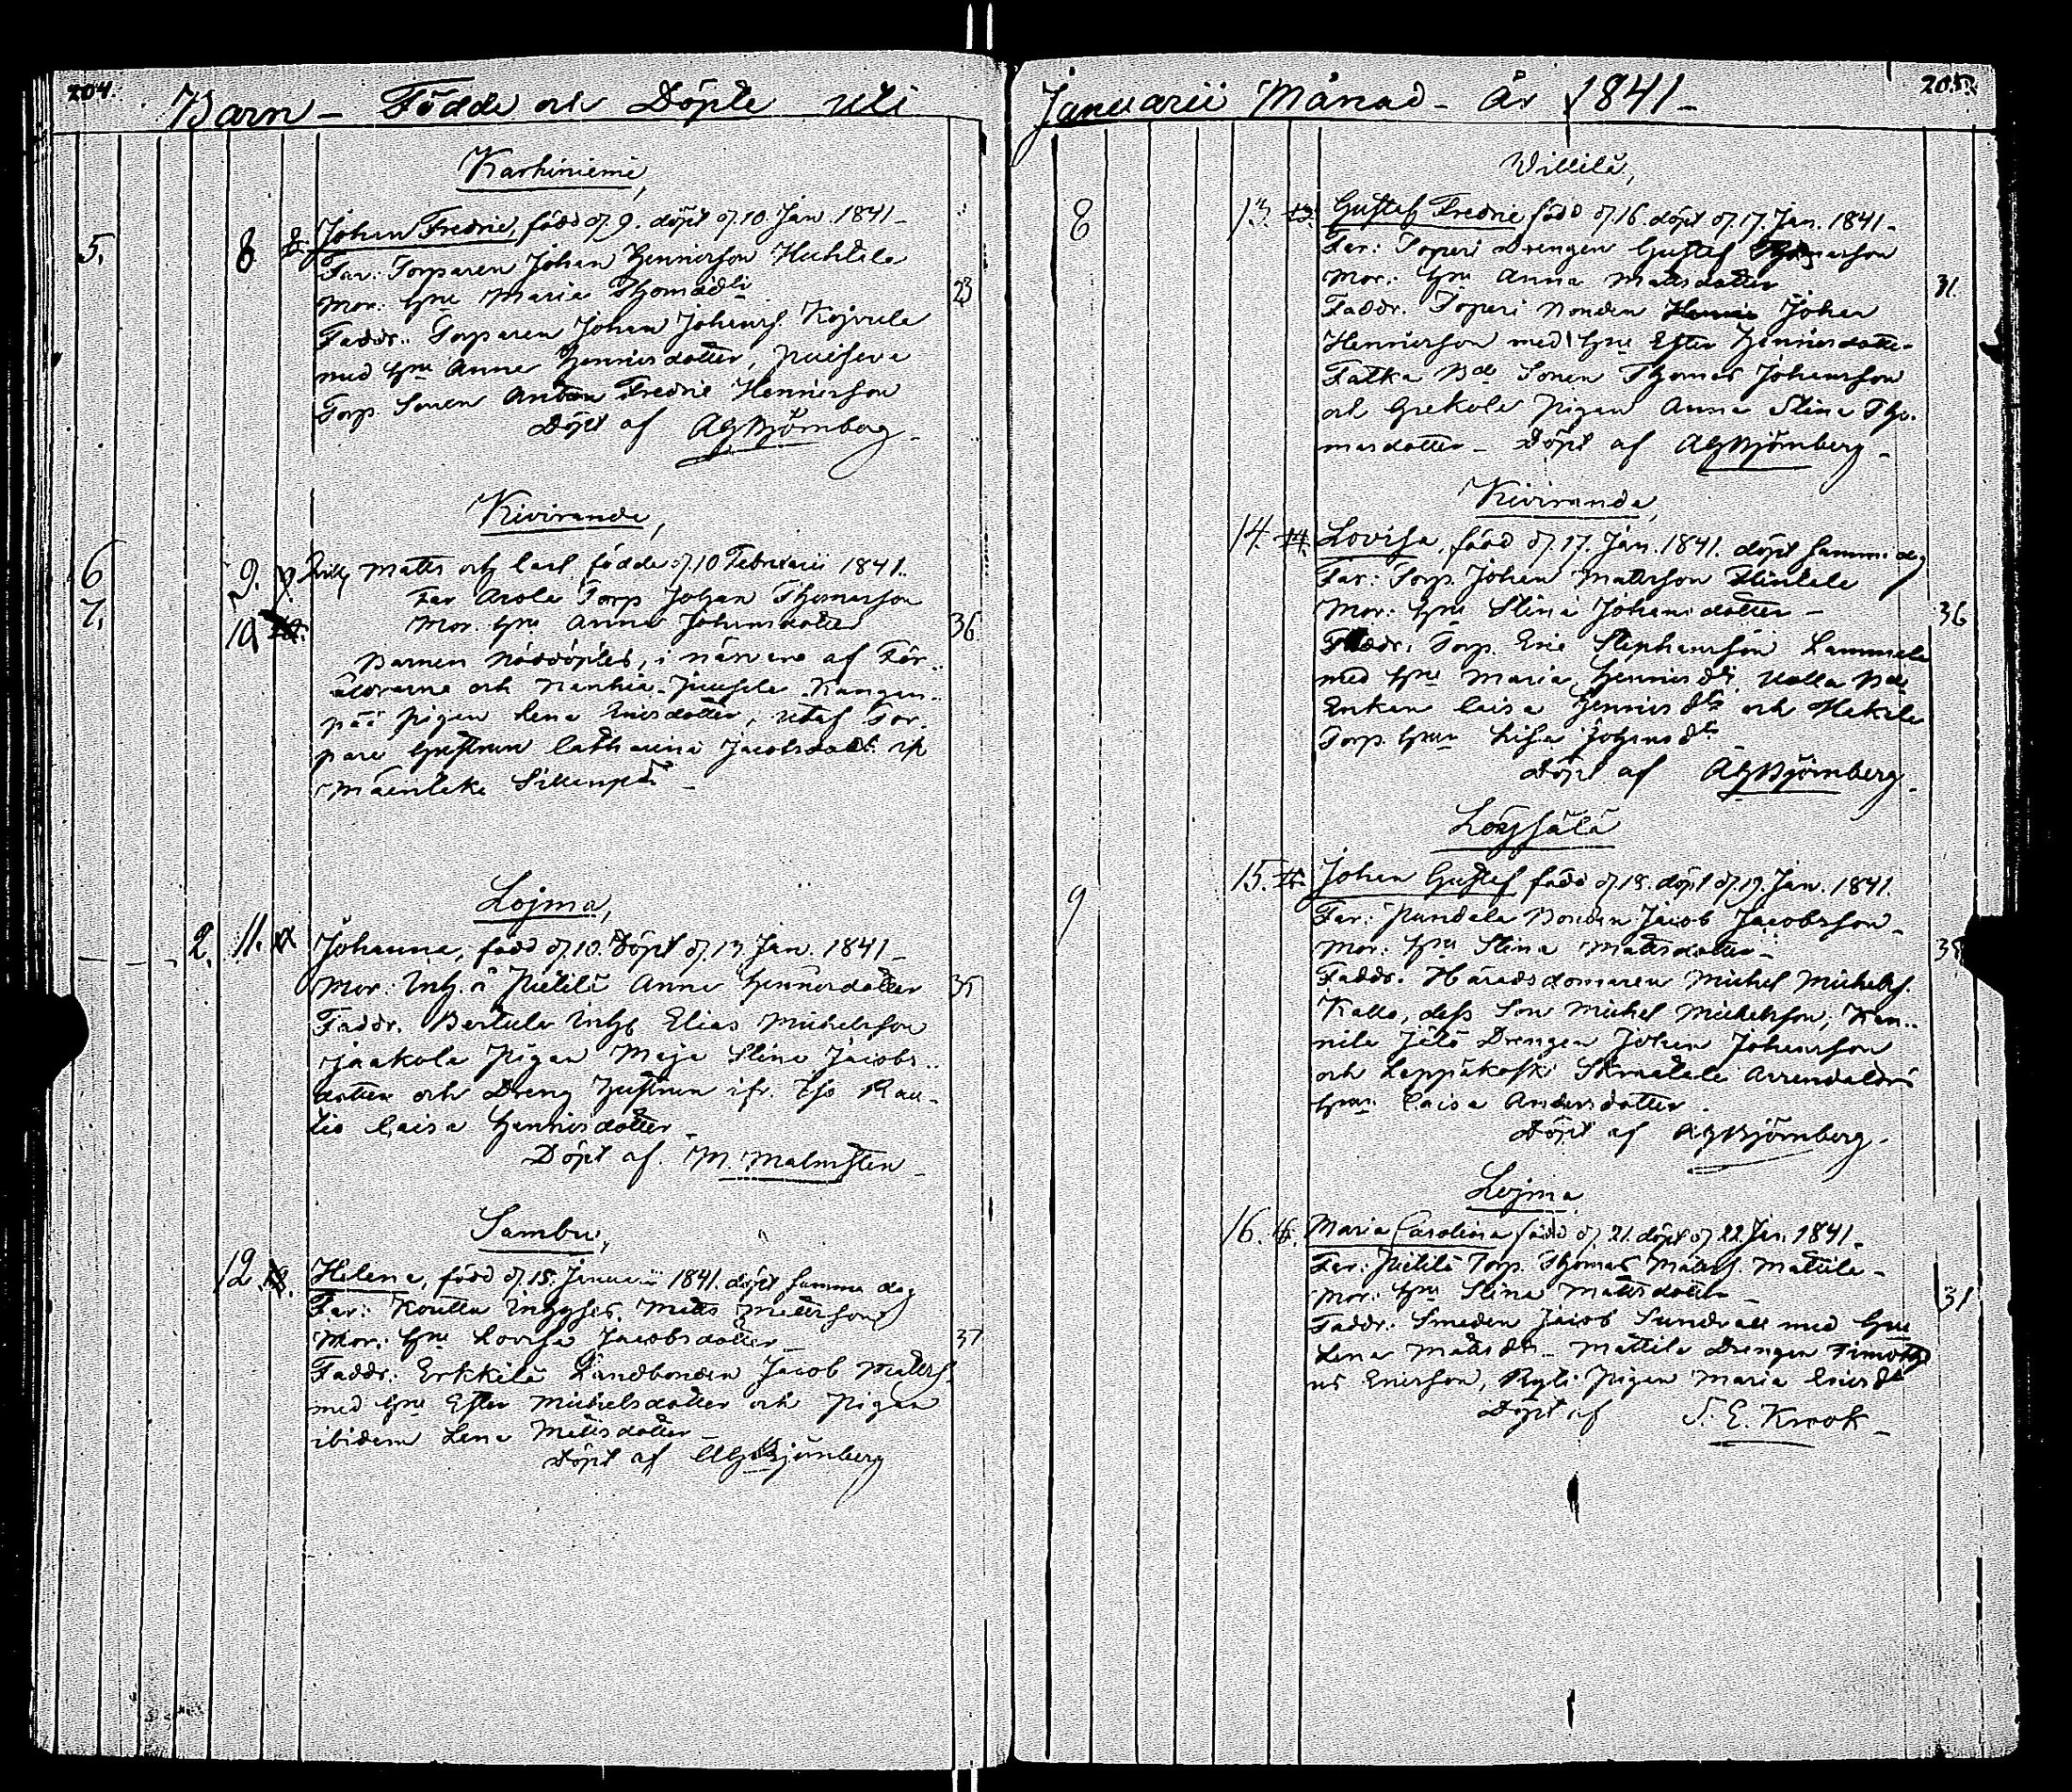 204.
Barn – Födde och Döpte uti
Karhiniemi,
5. 8 8. Johan Fredric, född d. 9. döpt d. 10. Jan. 1841 –
Far: Torparen Johan Henricsson Huhtala
Mor: Hm Maria Thomasdtr 23
Faddr. Torparen Johan Johanss.
med Hm Anna Henricsdotter,
Torp. Sonen Fredric Henricsson
Döpt af AGBjörnberg –
Kiviranda,
6 9. 9. Matts och Carl födde d. 10 Februarii 1841.
7. 10 10. Far Arola Torp Johan Thomasson
Mor. Hm Anna Johansdotter 36
Barnen nöddöptes, i närvaro af För..
äldrarna och Kangen..
pää Pigan Lena Ericsdotter, utaf Tor..
pare Hustrun Catharina Jacobsdotr
Lojma,
2. 11. Johanna, född d. 10. Döpt d. 13 Jan. 1841 –
Mor: Inh. å Pietilä Anna Henricsdotter 35
Faddr. Bertula Inhs Elias Michelsson
Jaakola Pigan Maja Stina Jacobs..
dotter och Dreng Hustrun ifr. Rau-
tio Caisa Henricsdotter –
Döpt af. M. Malmsten –
Sambu,
12. Helena, född d. 15. Januarii 1841. döpt samma dag
Far: Koutta Inhyses Matts Mattsson
Mor: Hm Lovisa Jacobsdotter – 37
Faddr: Erkkilä Landbonden Jacob Mattss.
med Hm Ester Michelsdotter och Pigan
ibidem Lena Mattsdotter –
Döpt af AGBjörnberg
205.
Januarii Månad – År 1841 –
Villilä,
8 13. 13. Gustaf Fredric född d. 16. döpt d. 17. Jan. 1841 –
Far: Soperi Drengen Gustaf Thomasson
Mor: Hm Anna Mattsdotter 31.
Faddr. Soperi Bonden Johan
Henricsson med Hm Ester Henricsdotter
Talka Bde Sonen Thomas Johansson
och Grekola Pigan Anna Stina Tho-
masdotter – Döpt af AGBjörnberg –
Kiviranda,
14. 14. Lovisa, född d. 17. Jan. 1841. döpt samma dag
Far: Torp. Johan Mattsson
Mor: Hm Stina Johansdotter – 36
Faddr. Torp. Eric Stephansson Lammela
med Hm Maria Henricsdtr. Bde
Enkan Caisa Henricsdtr och Hakala
Torp. Hm Lisa Johansdtr
Döpt af AGBjörnberg.
Löysälä
9 15. Johan Gustaf född d. 18. döpt d. 19. Jan. 1841.
Far: Pundala Bonden Jacob Jacobsson –
Mor: Hm Stina Mattsdotter – 38
Faddr. Häradsdomaren Michel Michelss.
Kallo, dess Son Michel Michelsson, Kan..
nila Drengen Johan Johansson
och Leppäkoski Arrendators
Hm. Caisa Andersdotter.
Döpt af AGBjörnberg.
Lojma
16. 16. Maria Carolina född d. 21. döpt d. 22 Jan. 1841 –
Far: Pietilä Torp. Thomas Mattss. Mattila –
Mor: Hm Stina Mattsdotter – 31
Faddr: Smeden Jacob Sundvall med Hm
Lena Mattsdtr – Mattila Drengen Timoth
us Ericsson, Ryli Pigan Maria Ericsdtr
Döpt af S. E. Krook –